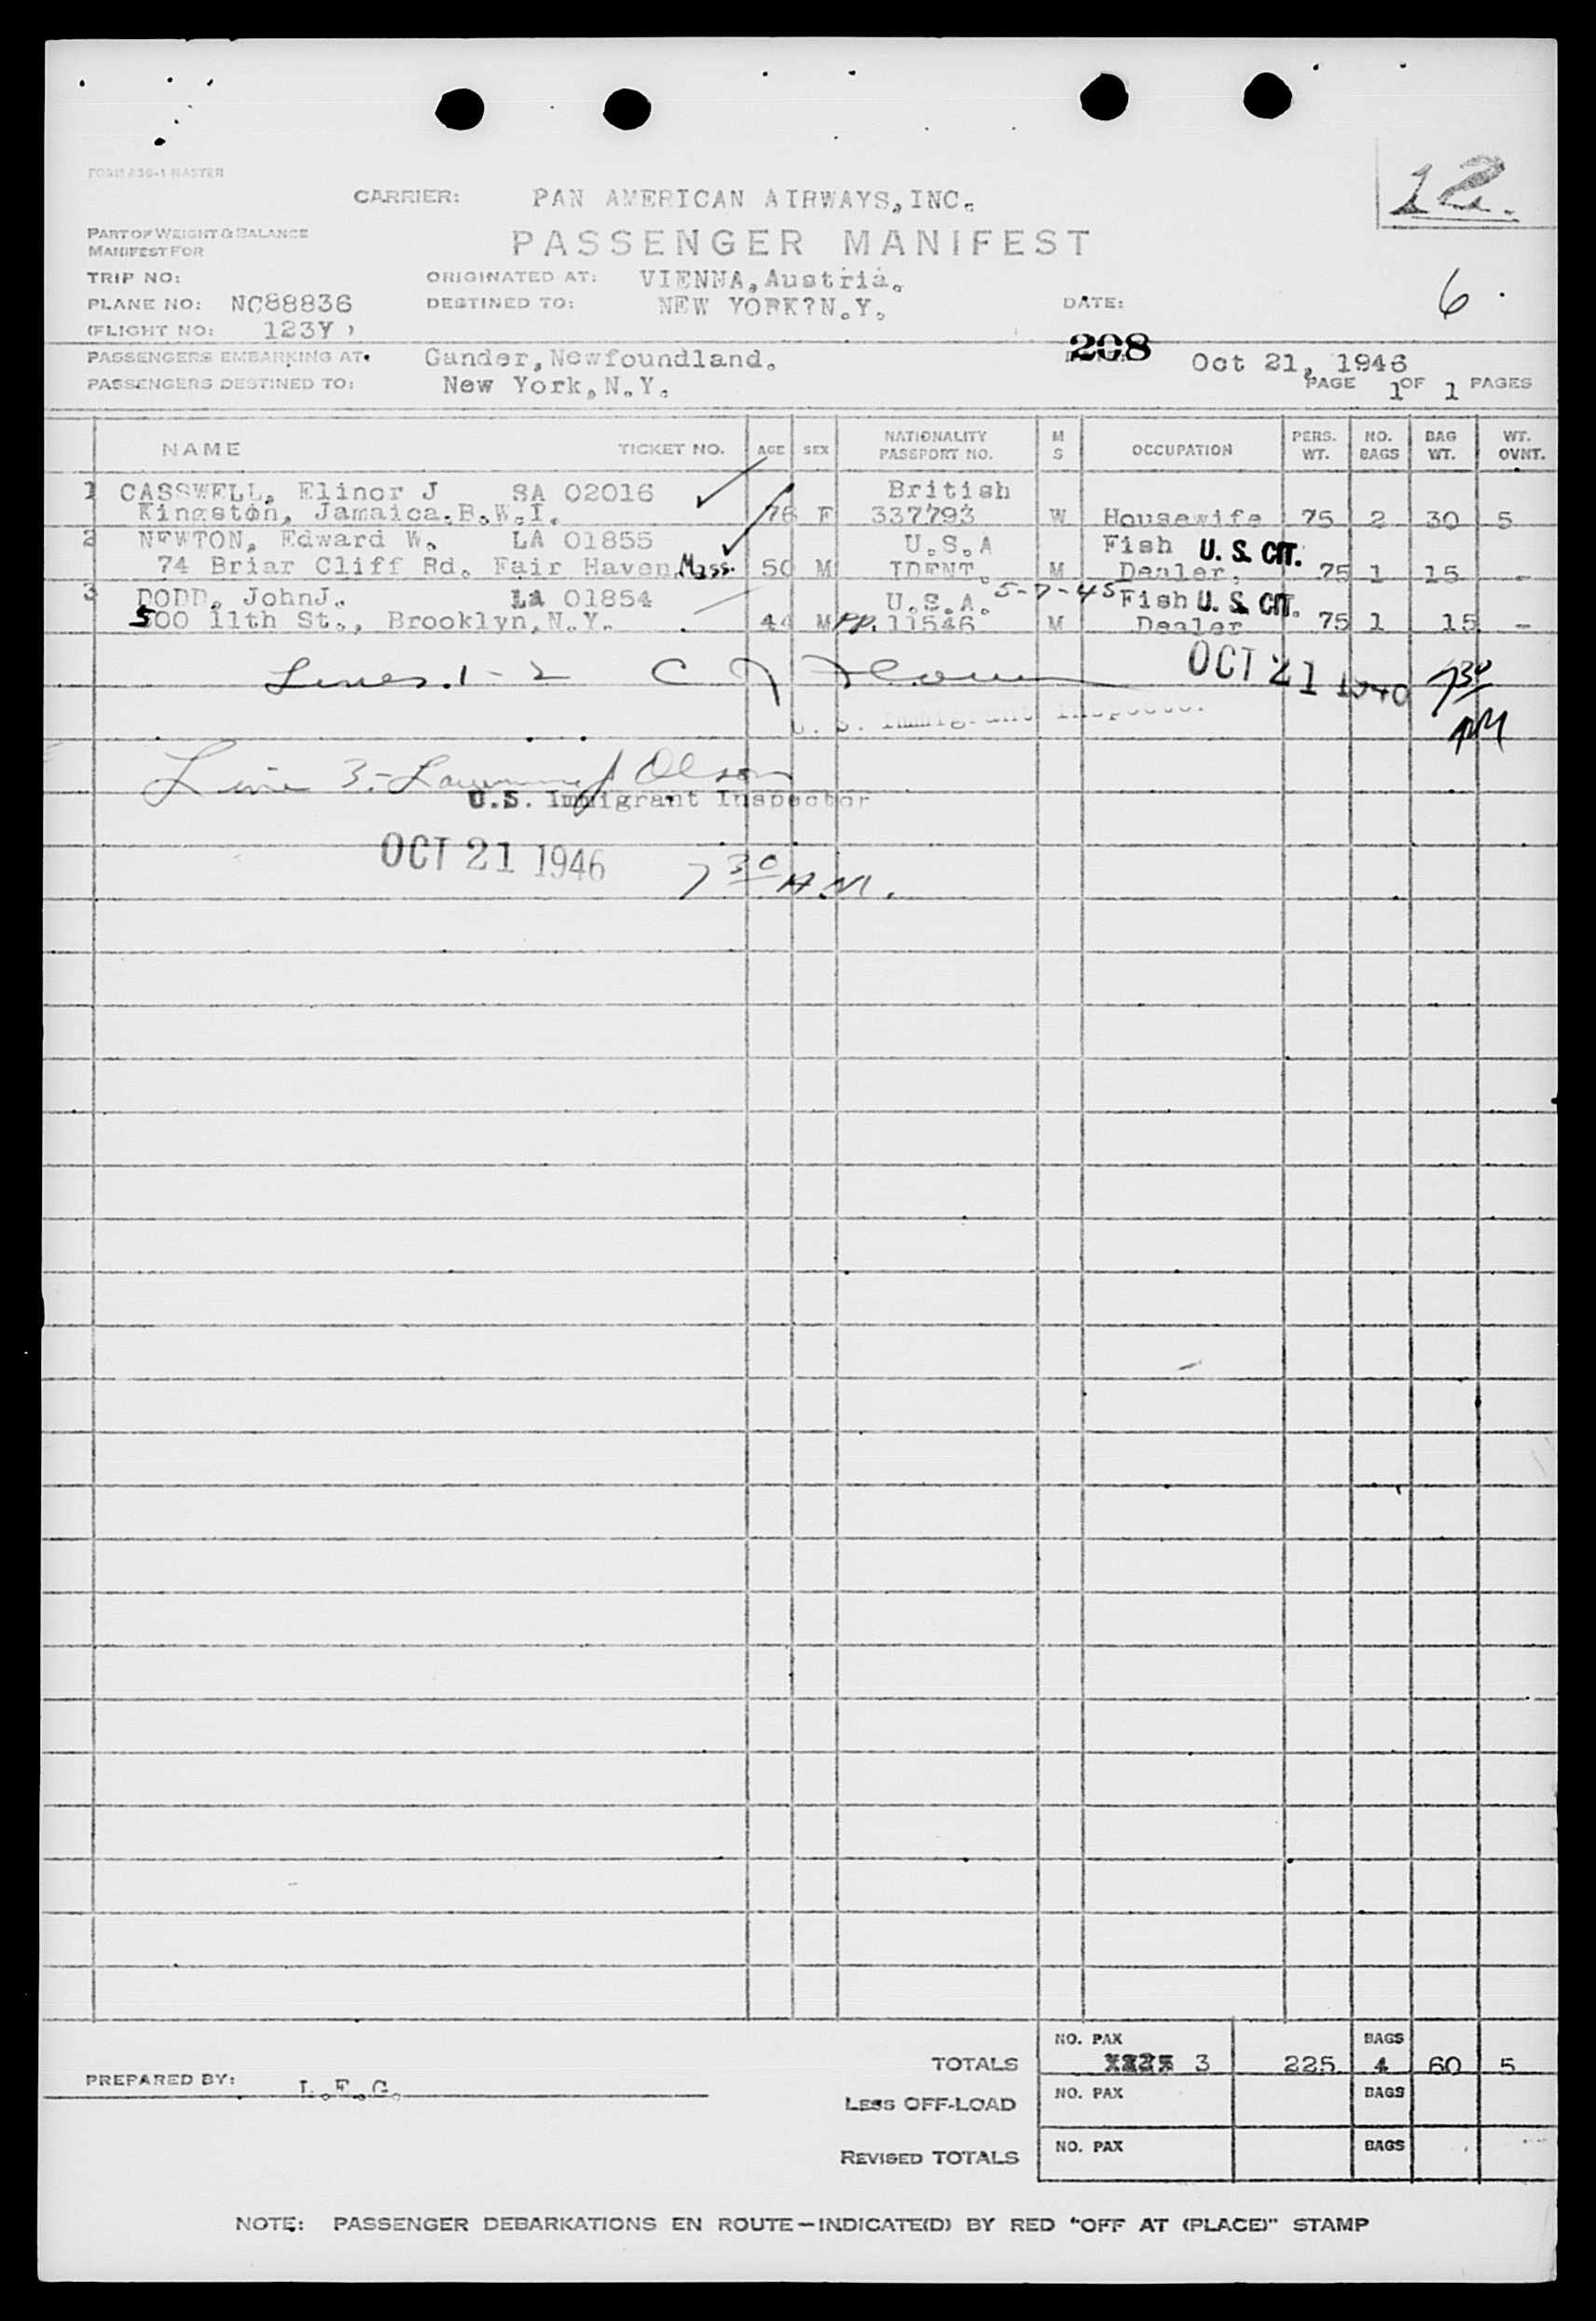 FORM A36-1 MASTER
12.
CARRIER: PAN AMERICAN AIRWAYS, INC.
PART OF WEIGHT & BALANCE
MANIFEST FOR
PASSENGER MANIFEST
TRIP NO: ORIGINATED AT: VIENNA, Austria.
PLANE NO: NC88836 DESTINED TO: NEW YORK?N.Y. DATE: 6.
(FLIGHT NO: 123Y )
PASSENGERS EMBARKING AT. Gander, Newfoundland. 208 Oct 21, 1946
PASSENGERS DESTINED TO: New York, N.Y. PAGE 1 OF 1 PAGES
NAME TICKET NO. AGE SEX NATIONALITY PASSPORT NO. M S OCCUPATION PERS. WT. NO. BAGS BAG WT. WT. OVNT.
1 CASSWELL, Elinor J SA 02016 British
Kingston, Jamaica.B.W.I. 76 F 337793 W Housewife 75 2 30 5
2 NEWTON, Edward W. LA 01855 U.S.A Fish U. S. CIT.
74 Briar Cliff Rd. Fair Haven Mass. 50 M IDENT. M Dealer. 75 1 15 -
5-7-45
3 DODD, JohnJ. LA 01854 U.S.A. Fish U. S. CIT.
500 11th St., Brooklyn, N.Y. 44 M PP. 11546 M Dealer 75 1 15 -
Lines. 1-2 C J OCT 21 1946 7 30
U. S. Immigrant Inspector AM
Line 3.- J Olson
U.S. Immigrant Inspector
OCT 21 1946 7 30 A.M.
NO. PAX BAGS
TOTALS 3 225 4 60 5
PREPARED BY: L.F.G.
LESS OFF-LOAD NO. PAX BAGS
REVISED TOTALS NO. PAX BAGS
NOTE: PASSENGER DEBARKATIONS EN ROUTE—INDICATE(D) BY RED "OFF AT (PLACE)" STAMP